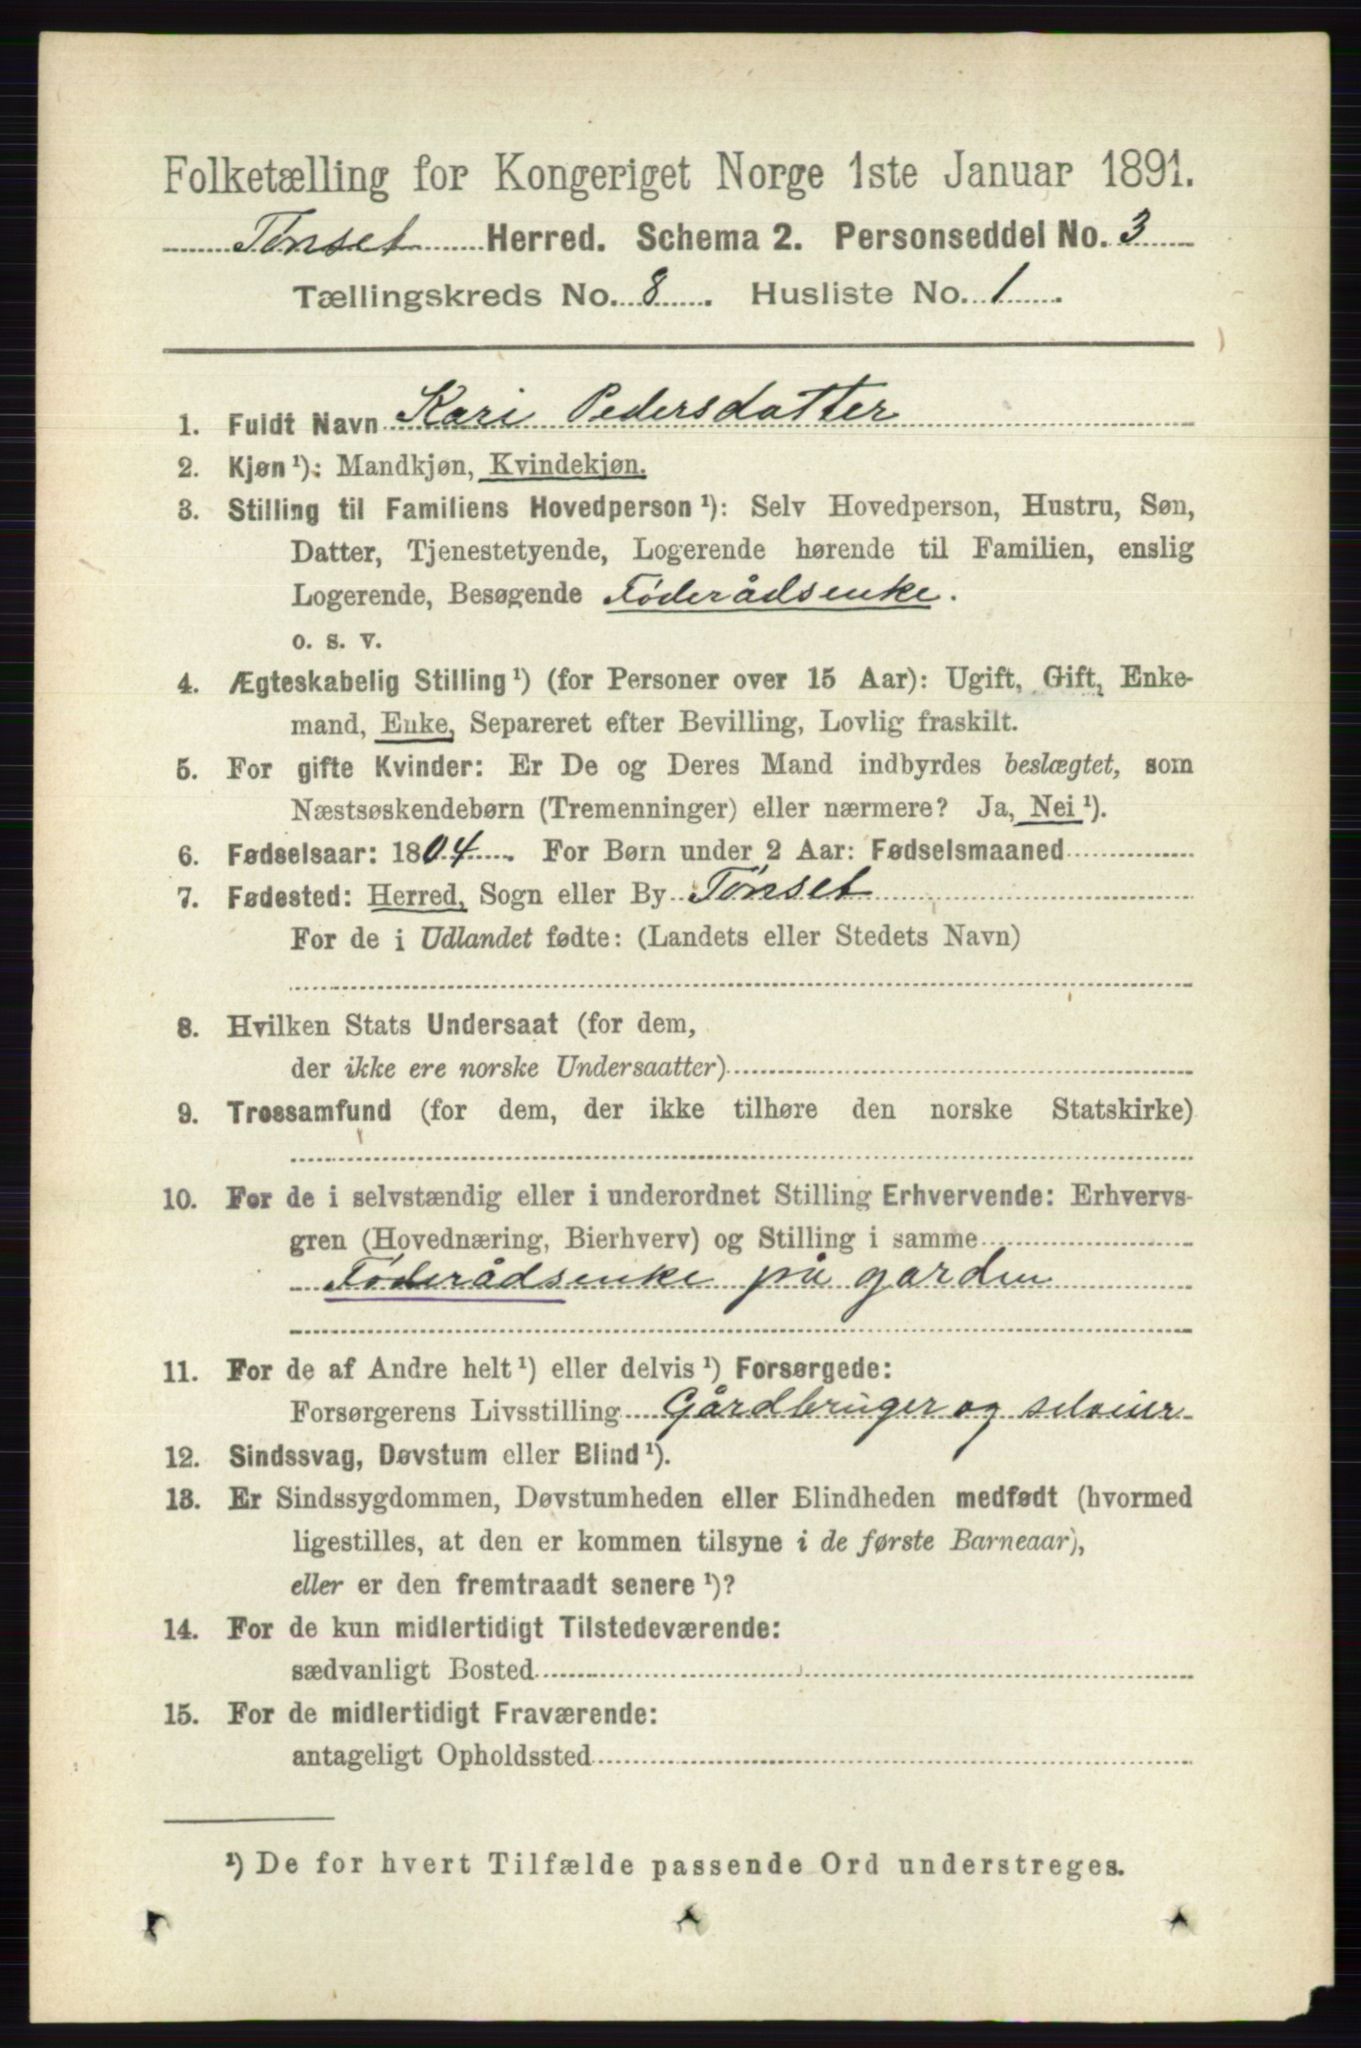 Folketælling for Kongeriget Norge 1ste Januar 1891.
Tønset Herred. Schema 2. Personseddel No. 3
Tællingskreds No. 8. Husliste No. 1.
1. Fuldt Navn Kari Pedersdatter
2. Kjøn ¹): Mandkjøn, Kvindekjøn.
3. Stilling til Familiens Hovedperson ¹): Selv Hovedperson, Hustru, Søn,
Datter, Tjenestetyende, Logerende hørende til Familien, enslig
Logerende, Besøgende Føderådsenke.
o. s. v.
4. Ægteskabelig Stilling ¹) (for Personer over 15 Aar): Ugift, Gift, Enke-
mand, Enke, Separeret efter Bevilling, Lovlig fraskilt.
5. For gifte Kvinder: Er De og Deres Mand indbyrdes beslægtet, som
Næstsøskendebørn (Tremenninger) eller nærmere? Ja, Nei ¹).
6. Fødselsaar: 1804. For Børn under 2 Aar: Fødselsmaaned
7. Fødested: Herred, Sogn eller By Tønset
For de i Udlandet fødte: (Landets eller Stedets Navn)
8. Hvilken Stats Undersaat (for dem,
der ikke ere norske Undersaatter)
9. Trossamfund (for dem, der ikke tilhøre den norske Statskirke)
10. For de i selvstændig eller i underordnet Stilling Erhvervende: Erhvervs-
gren (Hovednæring, Bierhverv) og Stilling i samme
Føderådsenke på garden
11. For de af Andre helt ¹) eller delvis ¹) Forsørgede:
Forsørgerens Livsstilling Gårdbruger og selveier
12. Sindssvag, Døvstum eller Blind ¹).
13. Er Sindssygdommen, Døvstumheden eller Blindheden medfødt (hvormed
ligestilles, at den er kommen tilsyne i de første Barneaar),
eller er den fremtraadt senere ¹)?
14. For de kun midlertidigt Tilstedeværende:
sædvanligt Bosted
15. For de midlertidigt Fraværende:
antageligt Opholdssted
¹) De for hvert Tilfælde passende Ord understreges.